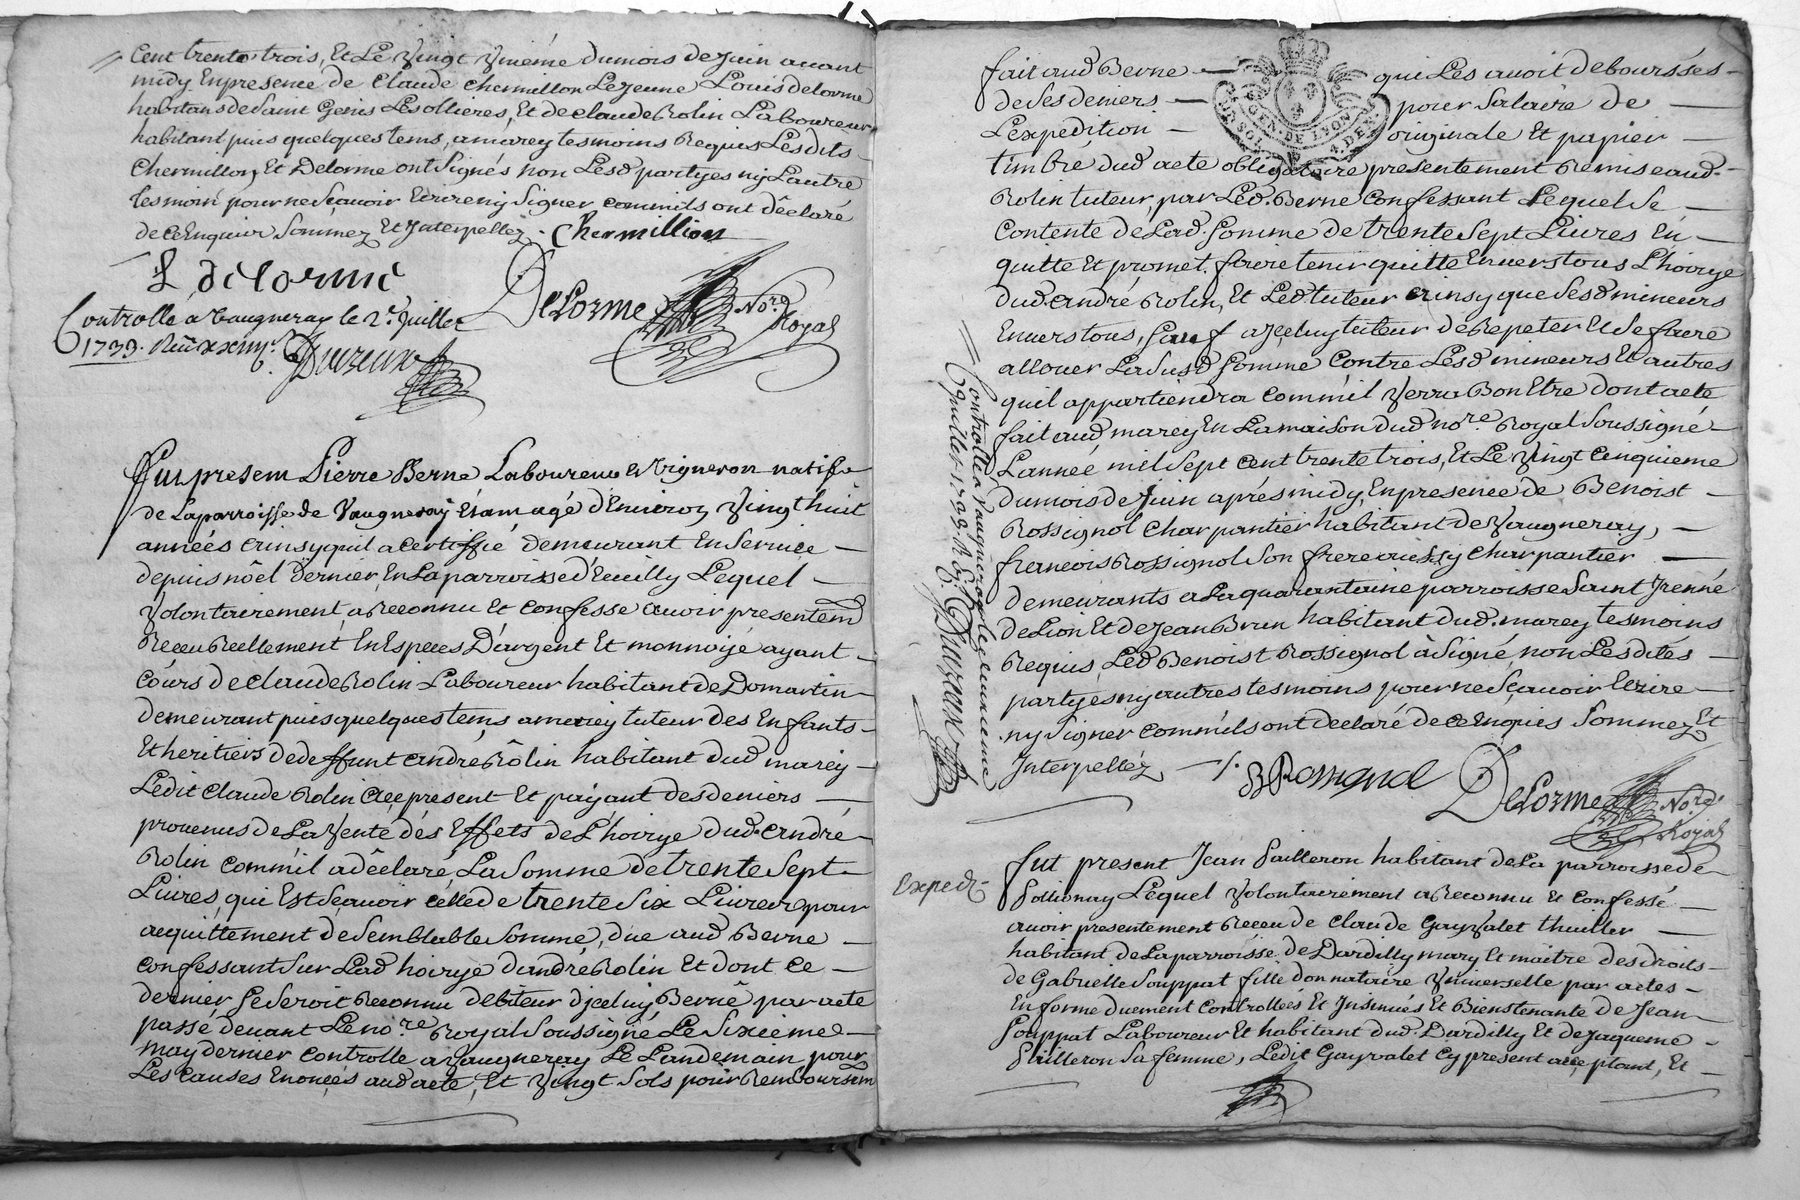 Cent trente trois, Et Le Vingt Uniéme du mois de Juin avant
midy En presence de Claude Chermillon Le Jeune Louis delorme
habitans de Saint Genis Les ollieres, Et de claude Rolin Laboureur
habitant puis quelques tems, a marcy tesmoins Requis Lesdits
Chermillon Et Delorme ont Signés non Lesd partyes ny Lautre
tesmoin pour ne Sçavoir Ecrire ny Signer comm'ils ont dêclaré
de ce Enquis Sommez Et Interpellez. Chermillion
L delorme
Delorme Nore Royal
Controllé a Vaugneray le 2e. Juillet
1733. Reçu
Fut present Pierre Berne Laboureur Et Vigneron natif
de La parroisse de Vaugneray Etant agé d'Environ Vingt huit
années ainsy quil a certiffié demeurant En Service
depuis nôel dernier En La parroisse d'EculLy Lequel
Volontairement a Reconnu Et Confesse avoir presentemt
Receu Reellement En Especes D'argent Et monnoye ayant
Cours de Claude Rolin Laboureur habitant de Domartin
demeurant puis quelques tems, a marcy tuteur des Enfants
Et heritiers de deffunt andré Rôlin habitant dud marcy
Ledit Claude Rolin Cy present Et payant des deniers
provenus de La Vente des Effets de L'hoirye dud. André
Rolin comm'il a dêclaré, La Somme de trente Sept
Livres, qui Est Sçavoir celle de trente Six Livres pour
acquittement de Semblable Somme, düe aud Berne
confessant Sur Lad hoirye d'andré Rolin Et dont ce
dernier Se Seroit Reconnu debiteur d'jceluy Berne par acte
passé devant Le nore. Royal Soussigné Le Sixieme
may dernier controllé a Vaugneray Le Landemain pour
Les causes Enoncés aud acte, Et Vingt Sols pour Remboursemt
fait aud Berne qui Les avoit deboursées
de Ses deniers pour Salaire de
L'expedition originale Et papier
GEN. DE LYON
timbré dud acte obligatoire presentement Remis aud.
Rolin tuteur, par Led. Berne Confessant Lequel Se
Contente de Lad. Somme de trente Sept Livres En
quitte Et promet faire tenir quitte Envers tous L'hoirye
dud. andré Rolin, Et Led tuteur ainsy que Sesd mineurs
Envers tous, Sauf a jceluy tuteur de Repeter Et Se faire
allouer La Susd Somme contre Lesd mineurs Et autres
quil appartiendra Comm'il Verra Bon Etre dont acte
fait aud, marcy En La maison dud nore. Royal Soussigné
L'année mil Sept cent trente trois, Et Le Vingt Cinquieme
du mois de Juin aprés midy, En presence de Benoist
Rossignol Charpantier habitant de Vaugneray,
francois Rossignol Son frere aussy Charpantier
demeurants a La quarantaine parroisse Saint Irenné
de Lion Et de Jean Brun habitant dud. marcy tesmoins
Requis, Led Benoist Rossignol à Signé, non Lesdites
partyes ny autres tesmoins pour ne Sçavoir Ecrire
ny Signer comm'ils ont declaré de ce Enquis Sommez Et
Interpellez
Delorme Nore.
Royal
Controllé a Vaugneray le deuxieme
Juillet 1733.
Expedié
fut present Jean Pailleron habitant de La parroisse de
Pollionay Lequel Volontairement a Reconnu Et confessé
avoir presentement Receu de Claude Gayvalet thuillier
habitant de La parroisse de Dardilly mary Et maitre des droits
de Gabrielle Souppat fille donnataire Vniverselle par actes
En forme düement Controllées Et Jnsinués Et Bienstenante de Jean
Souppat Laboureur Et habitant dud. Dardilly Et de Jaqueme
Pailleron Sa femme, Ledit Gayvalet Cy present acceptant, Et